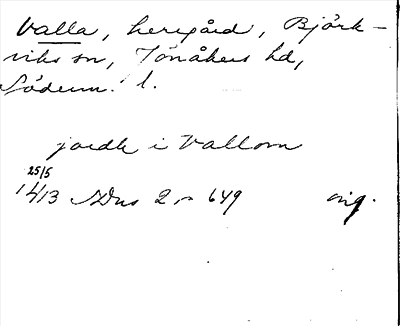 Valla, herrgård, Björk-
viks sn, Jönåkers hd,
Söderm. l.
jordh i Vallom
25/5
1413 SDns 2 n 649 orig.